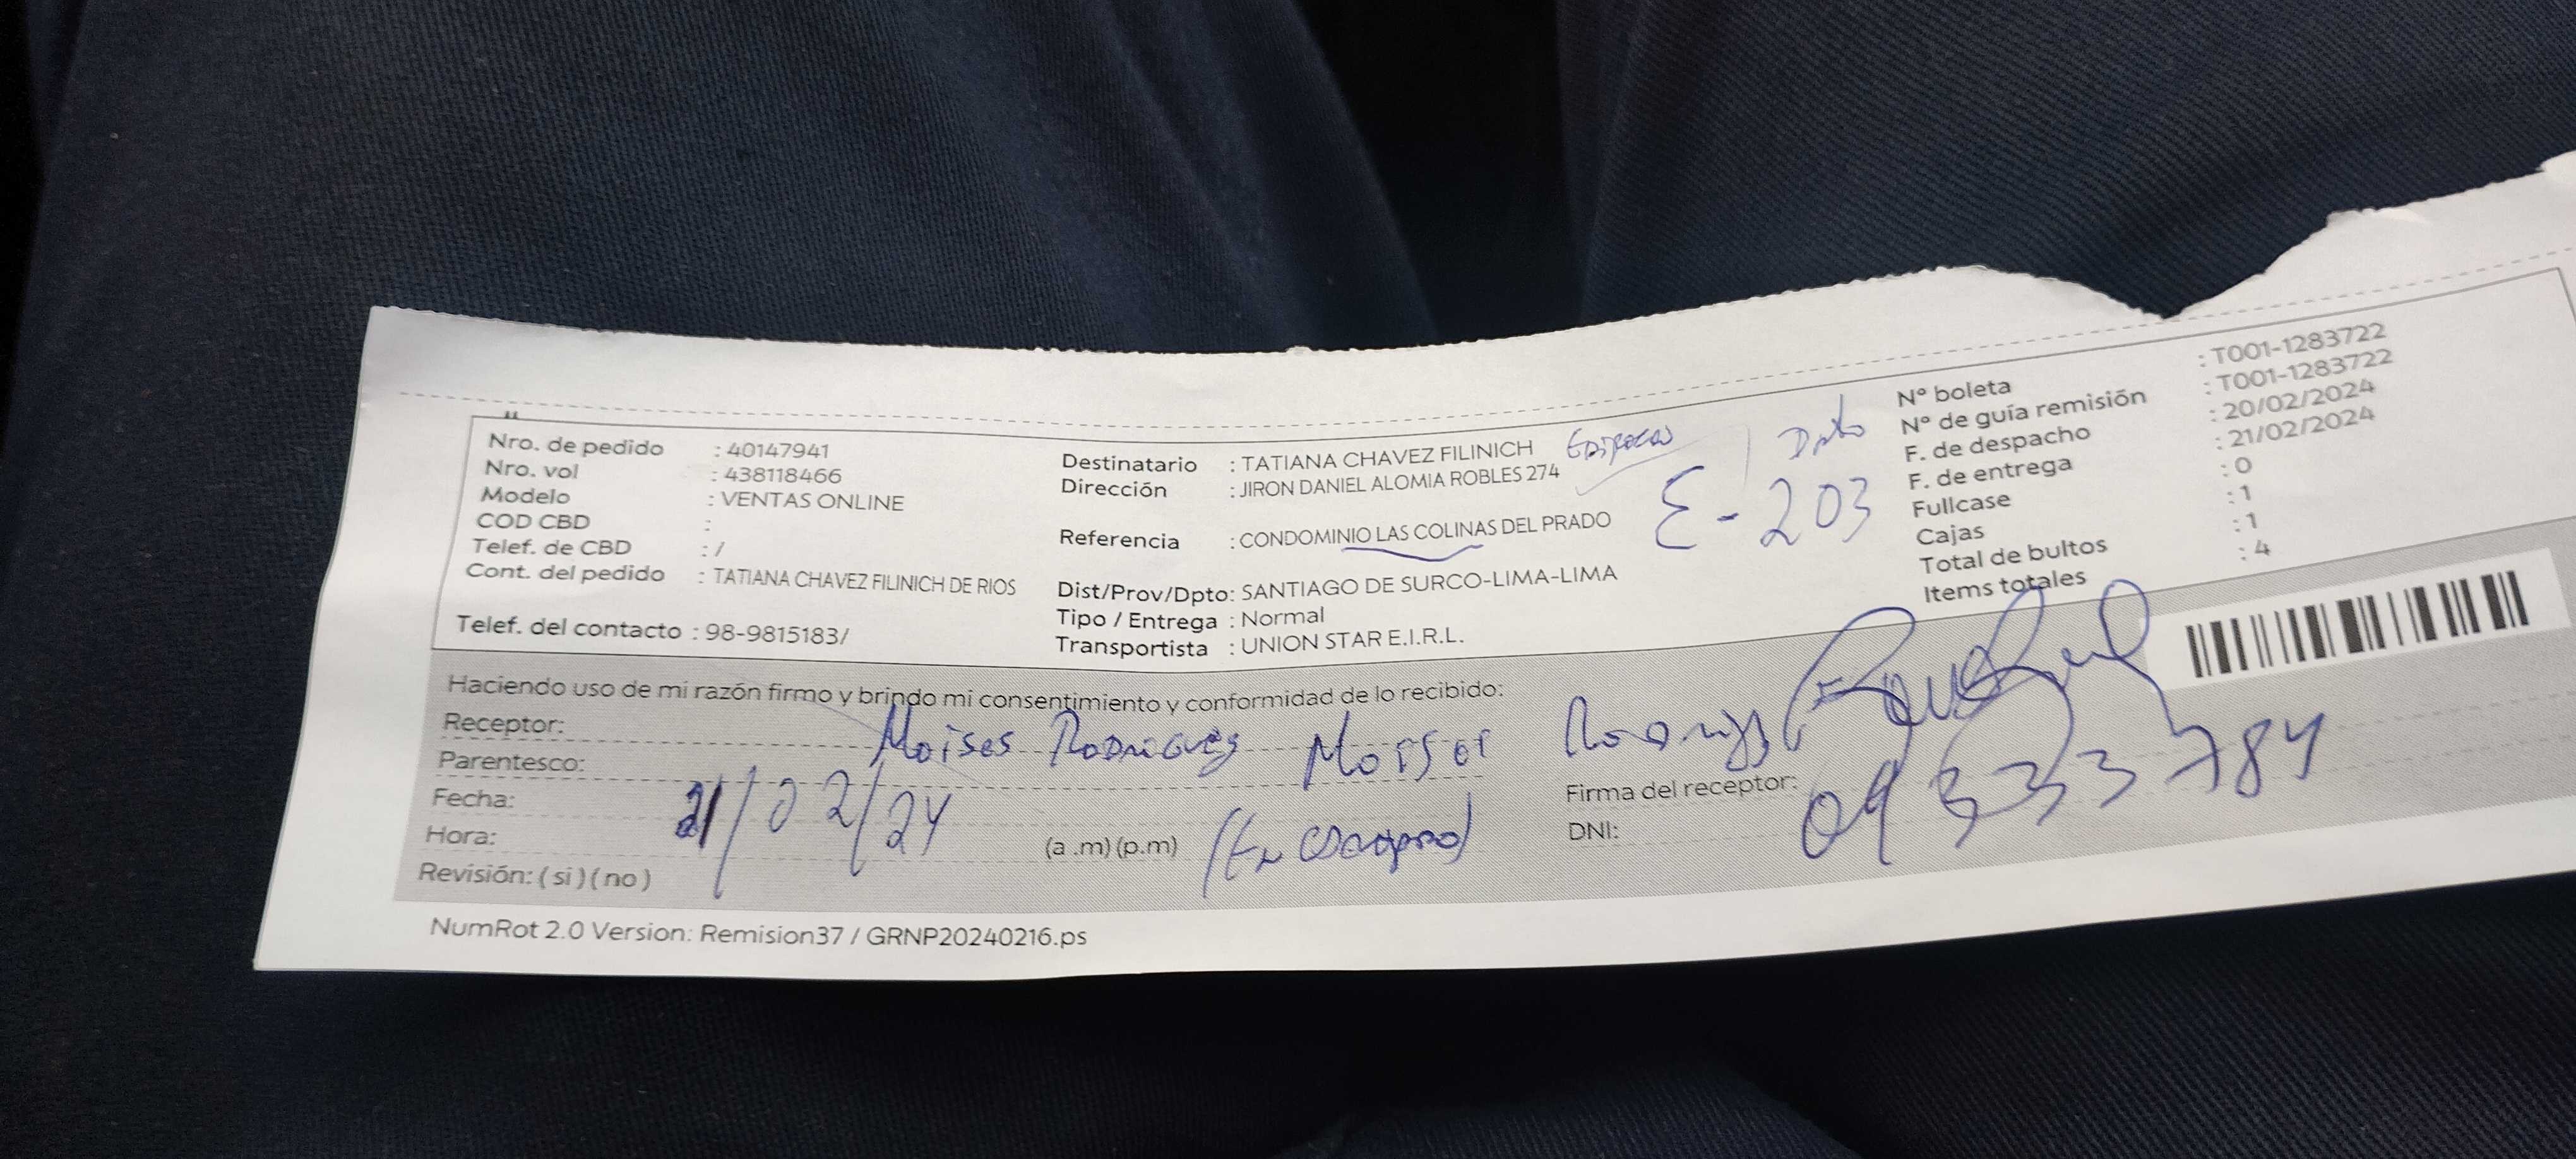 Nro. de pedido : 40147941
Nro. vol : 438118466
Modelo : VENTAS ONLINE
COD CBD :
Telef. de CBD : /
Cont. del pedido : TATIANA CHAVEZ FILINICH DE RIOS
Telef. del contacto : 98-9815183/
Destinatario : TATIANA CHAVEZ FILINICH
Dirección : JIRON DANIEL ALOMIA ROBLES 274
Referencia : CONDOMINIO LAS COLINAS DEL PRADO
Dist/Prov/Dpto: SANTIAGO DE SURCO-LIMA-LIMA
Tipo / Entrega : Normal
Transportista : UNION STAR E.I.R.L.
Dpto
E-203
N° boleta : T001-1283722
N° de guía remisión : T001-1283722
F. de despacho : 20/02/2024
F. de entrega : 21/02/2024
Fullcase : 0
Cajas : 1
Total de bultos : 1
Items totales : 4
Haciendo uso de mi razón firmo y brindo mi consentimiento y conformidad de lo recibido:
Receptor: Moises Rodriguez
Parentesco:
Fecha: 21/02/24
Hora: (a .m) (p.m)
Revisión: ( si ) ( no )
Firma del receptor:
DNI: 09333784
NumRot 2.0 Version: Remision37 / GRNP20240216.ps